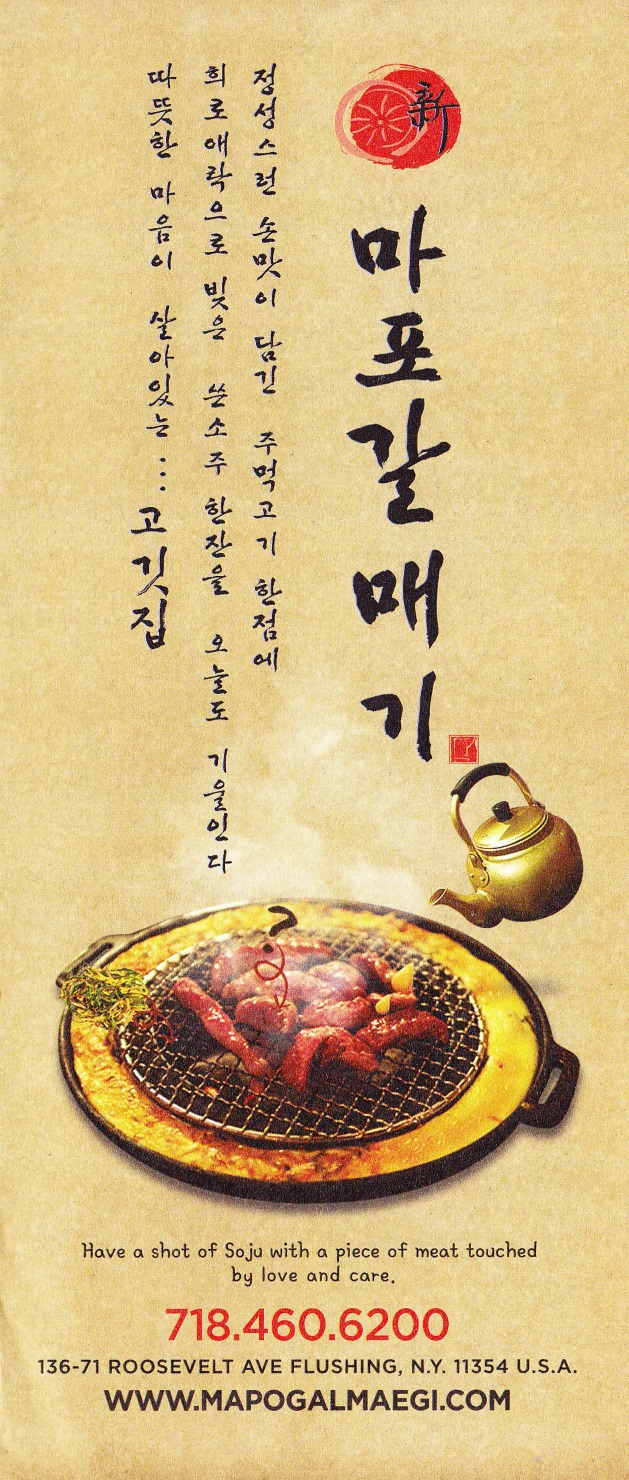 新
마포갈매기
정성스런 손맛이 담긴 주먹고기 한점에
희로애락으로 빚은 쓴소주 한잔을 오늘도 기울인다
따뜻한 마음이 살아있는... 고깃집
Have a shot of Soju with a piece of meat touched
by love and care.
718.460.6200
136-71 ROOSEVELT AVE FLUSHING, N.Y. 11354 U.S.A.
WWW.MAPOGALMAEGI.COM